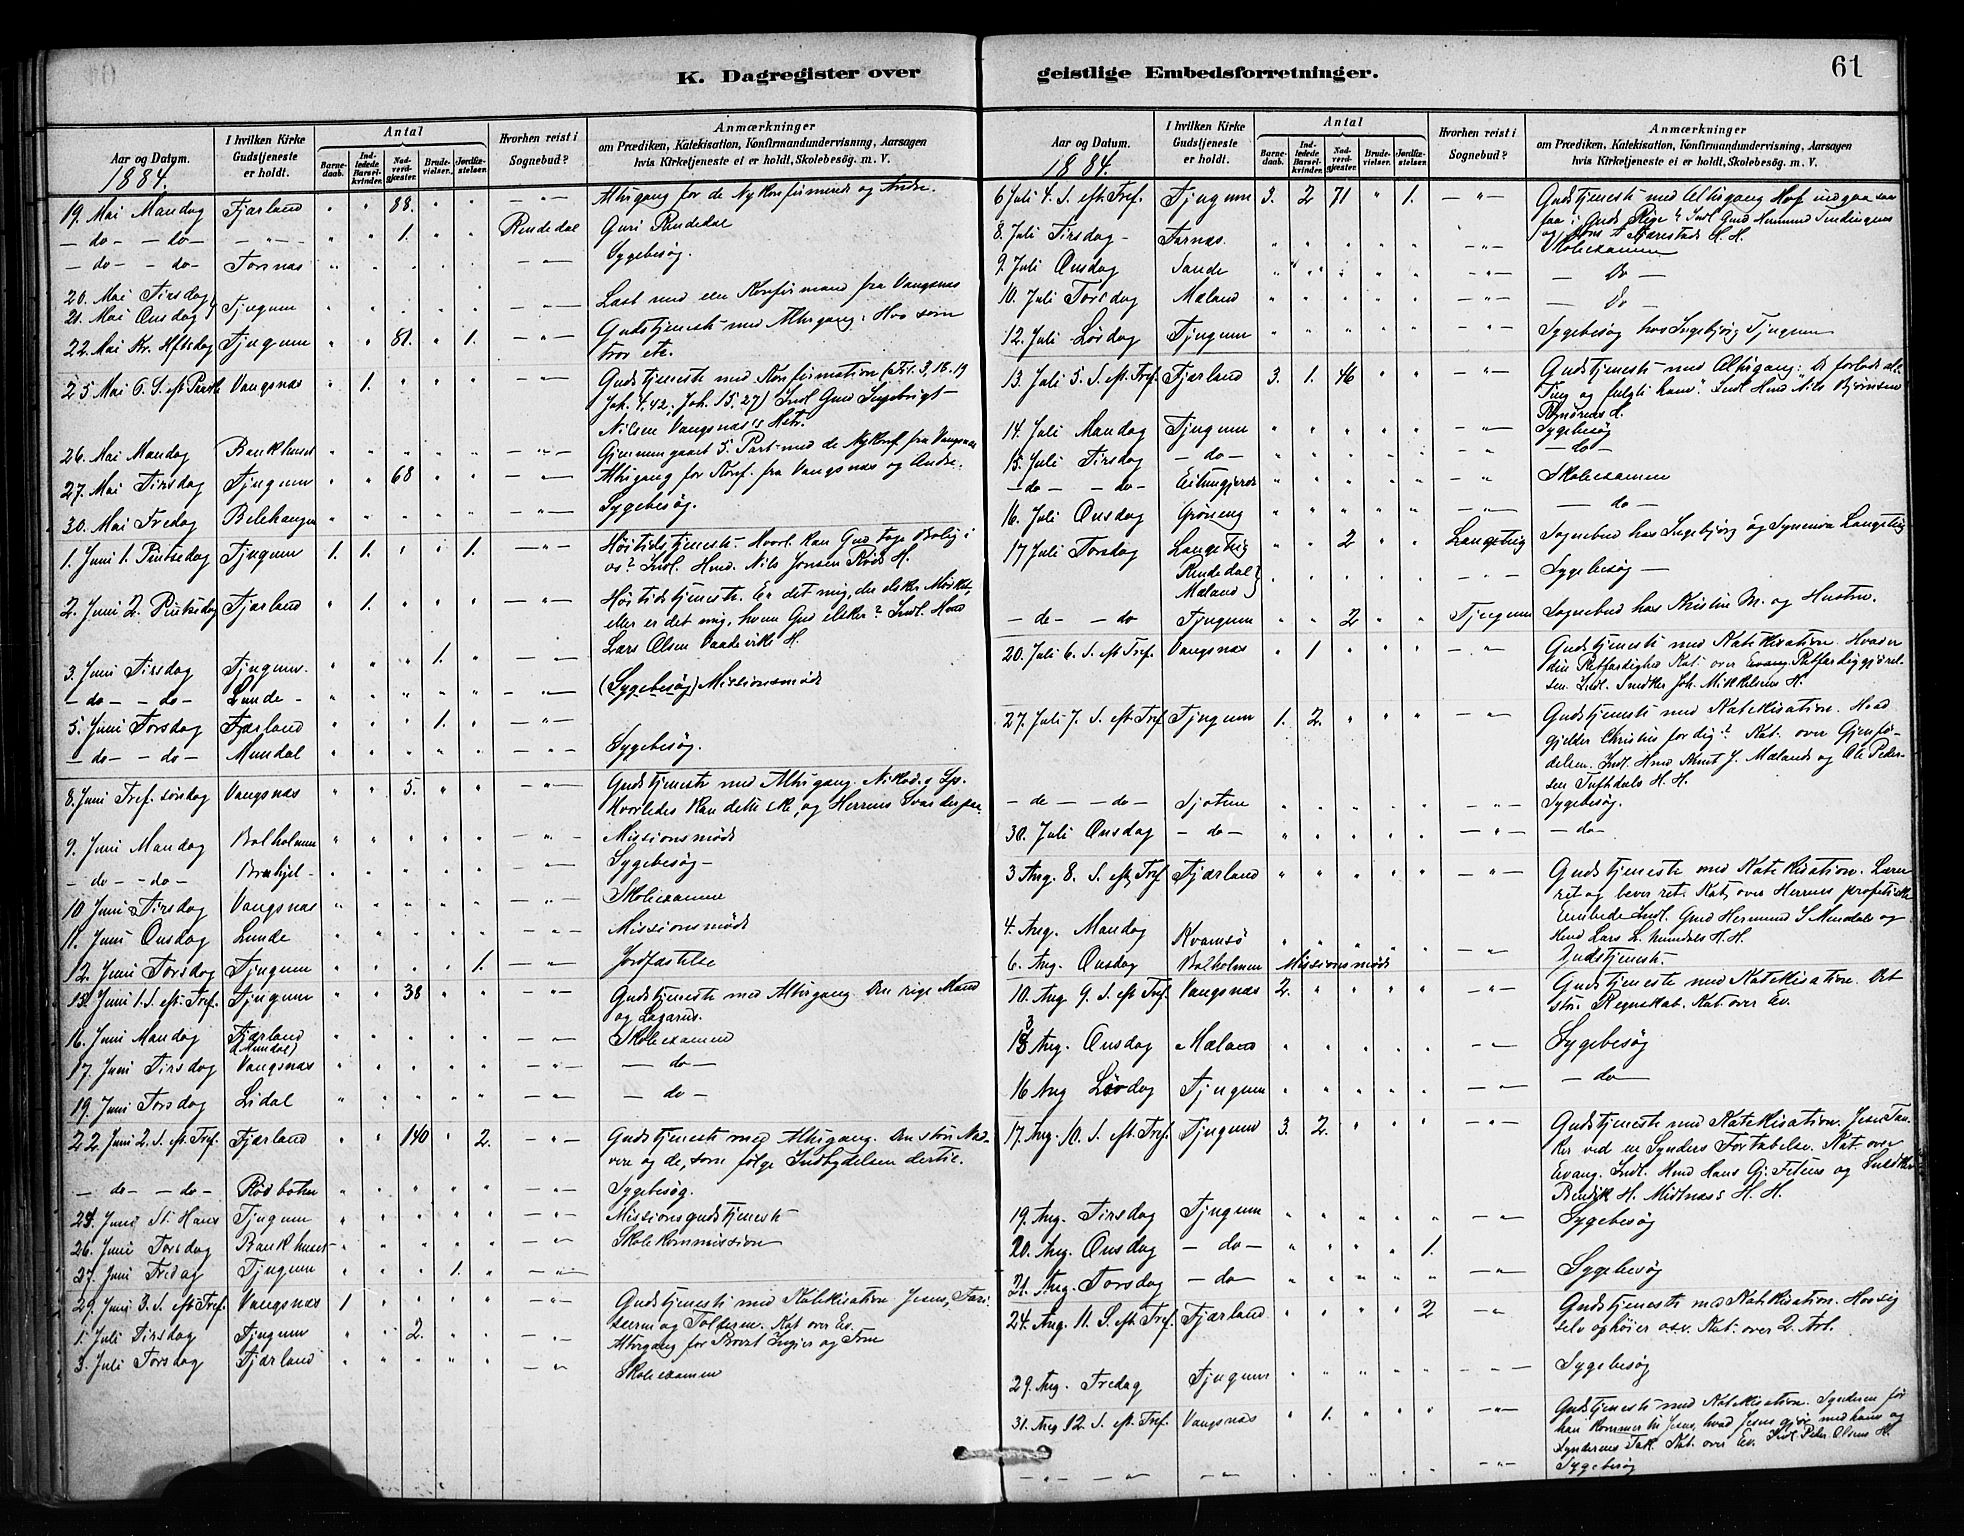 K. Dagregister over
Aar og Datum. 1884.
I hvilken Kirke Gudstjeneste er holdt.
Antal
Barnedaab. Indledede Barselkvinder. Nadverdgjester. Brudevielser. Jordfæstelser.
Hvorhen reist i Sognebud?
Anmærkninger
om Prædiken, Katekisation, Konfirmandundervisning, Aarsagen
hvis Kirketjeneste ei er holdt, Skolebesøg. m. V.
19. Mai Mandag Fjærland " " 88. " " — " — Altergang for de Nykonfirmerede og Andre.
— do — — do — — " — " " 1. " " Rendedal Guri Rendedal
— do — — do — " " " " " — " — Sygebesøg.
20. Mai Tirsdag
21. Mai Onsdag Tjugum " " " " " — " — Læst med een Konfirmand fra Vangsnæs
22. Mai Kr. Hftsdag Tjugum " " 81. " 1. — " — Gudstjeneste med Altergang. Hvo som
tror etc.
25 Mai 6. S. eft Paaske Vangsnæs " 1. " " " — " — Gudstjeneste med Konfirmation
Joh. 4.42; Joh. 15.27) Indl Gmd Ingebrigt
Nilsen Vangsnæs's Hstr.
26. Mai Mandag Bankhuset " " " " " — " — Gjennemgaaet 5. Part med de Nykonf. fra Vangsnæs
27. Mai Tirsdag Tjugum " " 68 " " — " — Altergang for Konf. fra Vangsnæs og Andre.
30. Mai Fredag Belehaugen " " " " " — " — Sygebesøg.
1. Juni 1. Pintsedag Tjugum 1. 1. " " 1. — " — Høitidstjeneste. Hvorl. kan Gud tage Bolig i
os? Indl. Hmd. Nils Jonsen H.
2. Juni 2. Pintsedag Fjærland " 1. " " " — " — Høitidstjeneste. Er det mig, der elsker Mørket,
eller er det mig, hvem Gud elsker? Indl. Hmd
Lars Olsen H.
3. Juni Tirsdag Tjugum " " " 1. " — " —
— do — — do — Lunde — " " " " " — " — (Sygebesøg) Missionsmøde
5. Juni Torsdag Fjærland " " " 1. " — " —
— do — — do — Mundal " " " " " — " — Sygebesøg.
8. Juni Tref. søndag Vangsnæs " " 5. " " — " — Gudstjeneste med Altergang. Nikod.s Sps.
Hvorledes kan dette ske, og Herrens Svar derpaa
9. Juni Mandag Balholmen " " " " " — " — Missionsmøde
— do — — do — " " " " " — " — Sygebesøg —
10 Juni Tirsdag Vangsnæs " " " " " — " — Skoleexamen
11. Juni Onsdag Lunde " " " " " — " — Missionsmøde
12. Juni Torsdag Tjugum " " " " 1. — " — Jordfæstelse
15. Juni 1. S. eft. Tref. Tjugum " " 38 " " — " — Gudstjeneste med Altergang. Den rige Mand
og Lazarus.
16. Juni Mandag Fjærland (Mundal) " " " " " — " — Skoleexamen
17. Juni Tirsdag Vangsnæs " " " " " — " — — do —
19. Juni Torsdag Lidal " " " " " — " — — do —
22. Juni 2. S. eft. Tref. Fjærland " " 140 " 2. — " — Gudstjeneste med Altergang. Den store Nad-
vere og de, som følge Indbydelsen dertil.
— do — — do — Rødbotn " " " " " — " — Sygebesøg.
24. Juni St. Hans Tjugum " " " " " — " — Missionsgudstjeneste
26. Juni Torsdag Bankhuset " " " " " — " — Skolekommission
27. Juni Fredag Tjugum " " " 1. " — " —
29. Juni 3. S. eft Tref. Vangsnæs 1 " " " " — " — Gudstjeneste med Katekisation. Jesus, Fari-
sæerne og Tolderne. Kat over Ev.
1. Juli Tirsdag Tjugum " " 2. " " — " — Altergang for Provst og Frue
3. Juli Torsdag Fjærland " " " " " — " — Skoleexamen
geistlige Embedsforretninger. 61
Aar og Datum. 1884.
I hvilken Kirke Gudstjeneste er holdt.
Antal
Barnedaab. Indledede Barselkvinder. Nadverdgjester. Brudevielser. Jordfæstelser.
Hvorhen reist i Sognebud?
Anmærkninger
om Prædiken, Katekisation, Konfirmandundervisning, Aarsagen
hvis Kirketjeneste ei er holdt, Skolebesøg. m. V.
6 Juli 4. S. eft. Tref. Tjugum 3. 2 71 " 1. — " — Gudstjeneste med Altergang Hvo indgaa
i Guds Rige? Indl Gmd
H. H.
8. Juli Tirsdag — Farnæs. " " " " " — " — Skoleexamen
9. Juli Onsdag Sande " " " " " — " — — Do —
10. Juli Torsdag Mæland " " " " " — " — — Do —
12. Juli Lørdag Tjugum " " " " " — " — Sygebesøg hos Ingebjørg Tjugum
13. Juli 5. S. eft. Tref. Fjærland 3. 1. 46 " " — " — Gudstjeneste med Altergang: De forlode alle
Ting og fulgte ham". Indl Hmd Nils Bjørnsen
14. Juli Mandag Tjugum " " " " " — " — Sygebesøg
15. Juli Tirsdag — do — " " " " " " — do —
— do — — do — Eitungjerde " " " " " — " Skoleexamen
16. Juli Onsdag Grøneng " " " " " — " — — do —
17 Juli Torsdag Langeteig " " 2 " " Langeteig Sognebud hos Ingebjørg og Synneva Langeteig
Rendedal
Mæland " " " " " — " — Sygebesøg —
— do — — do Tjugum " " 2 " " Tjugum Sognebud hos Kristen M. og Hustru.
20. Juli 6. S. eft Tref. Vangsnæs " 1 " " " — " — Gudstjeneste med Katekisation. Hvad er
din Retfærdighed Kat. over Evang. Retfærdiggjørel-
sen. Indl. Snedker Joh. Mikkelsens H.
27. Juli 7. S. eft Tref Tjugum 1. 2. " " " — " — Gudstjeneste med Katekisation. Hvad
gjelder Christus for dig? Kat. over Gjenfø-
delsen. Indl. Hmd Knut J. Mælands og Ole Peder-
sen Tuftdals H. H.
— do — — do — " " " " " — " — Sygebesøg.
30. Juli Onsdag — do — " " " " " — " — — do —
3 Aug. 8. S. eft Tref Fjærland " " " " " — " — Gudstjeneste med Katekisation. Lærer
ret og lever ret. Kat. over Herrens profetiske
Embede Indl. Gmd Hermund S. Mundals og
Hmd Lars L. Mundals H. H.
4. Aug. Mandag Kvamsø " " " " " — " — Gudstjeneste
6. Aug. Onsdag Balholmen Missionsmøde
10. Aug 9. S. eft Tref. Vangsnæs 2. " " " " — " — Gudstjeneste med Katekisation. Det
store Regnskab. Kat. over Ev.
13 Aug. Onsdag Mæland " " " " " — " — Sygebesøg
16 Aug Lørdag Tjugum " " " " " — " — — do —
17. Aug. 10. S. eft. Tref. Tjugum 3. 2. " " " — " — Gudstjeneste med Katekisation. Jesu Tan-
ker ved en Synders Fortabelse. Kat. over
Evang. Indl. Hmd Hans G. og Snedker
Bendik H. Midtnæs's H. H.
19. Aug. Tirsdag Tjugum " " " " " — " — Sygebesøg
20. Aug. Onsdag — do — " " " " 1. — " —
21. Aug. Torsdag — do — " " " " " — " — Sygebesøg
24. Aug. 11. S. eft. Tref. Fjærland " " " " 2 — " — Gudstjeneste med Katekisation. Hvo sig
selv ophøier o.s.v. Kat. over 2. Art.
29. Aug. Fredag Tjugum " " " " " — " — Sygebesøg
31. Aug 12. S. eft. Tref. Vangsnæs " 1. " " " — " — Gudstjeneste med Katekisation. Synderen før
han kommer til Jesus, hvad Jesus gjør med ham og
Synderens Tak. Kat. over Ev. Indl. Peder Olsens H.
— " — — " — — " — " " " " " — " — Sygebesøg